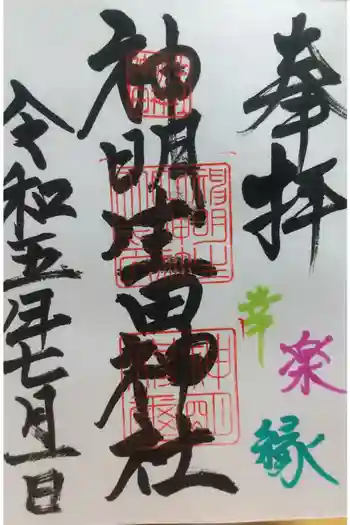 奉拝
幸
楽
縁
神明生田神社
令和五年七月一日